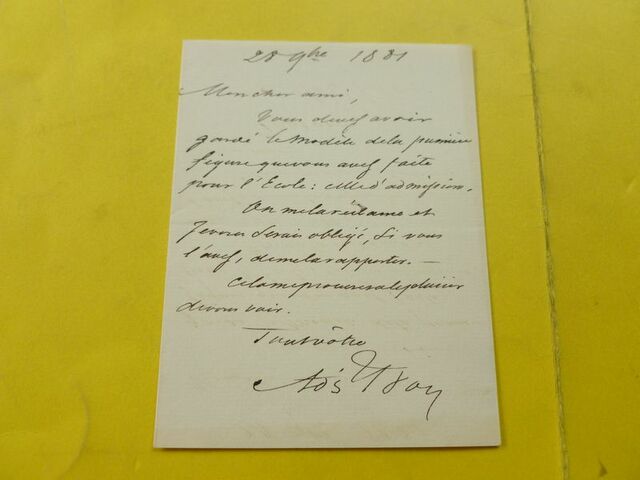 28 9bre 1881
Mon cher ami,
Vous devez avoir
gardé le modèle de la première
figure que vous avez faite
pour l'École : celle d'admission.
On me la réclame et
je vous serais obligé, si vous
l'avez, de me la rapporter. —
Cela me procurera le plaisir
de vous voir.
Tout vôtre
Ad's